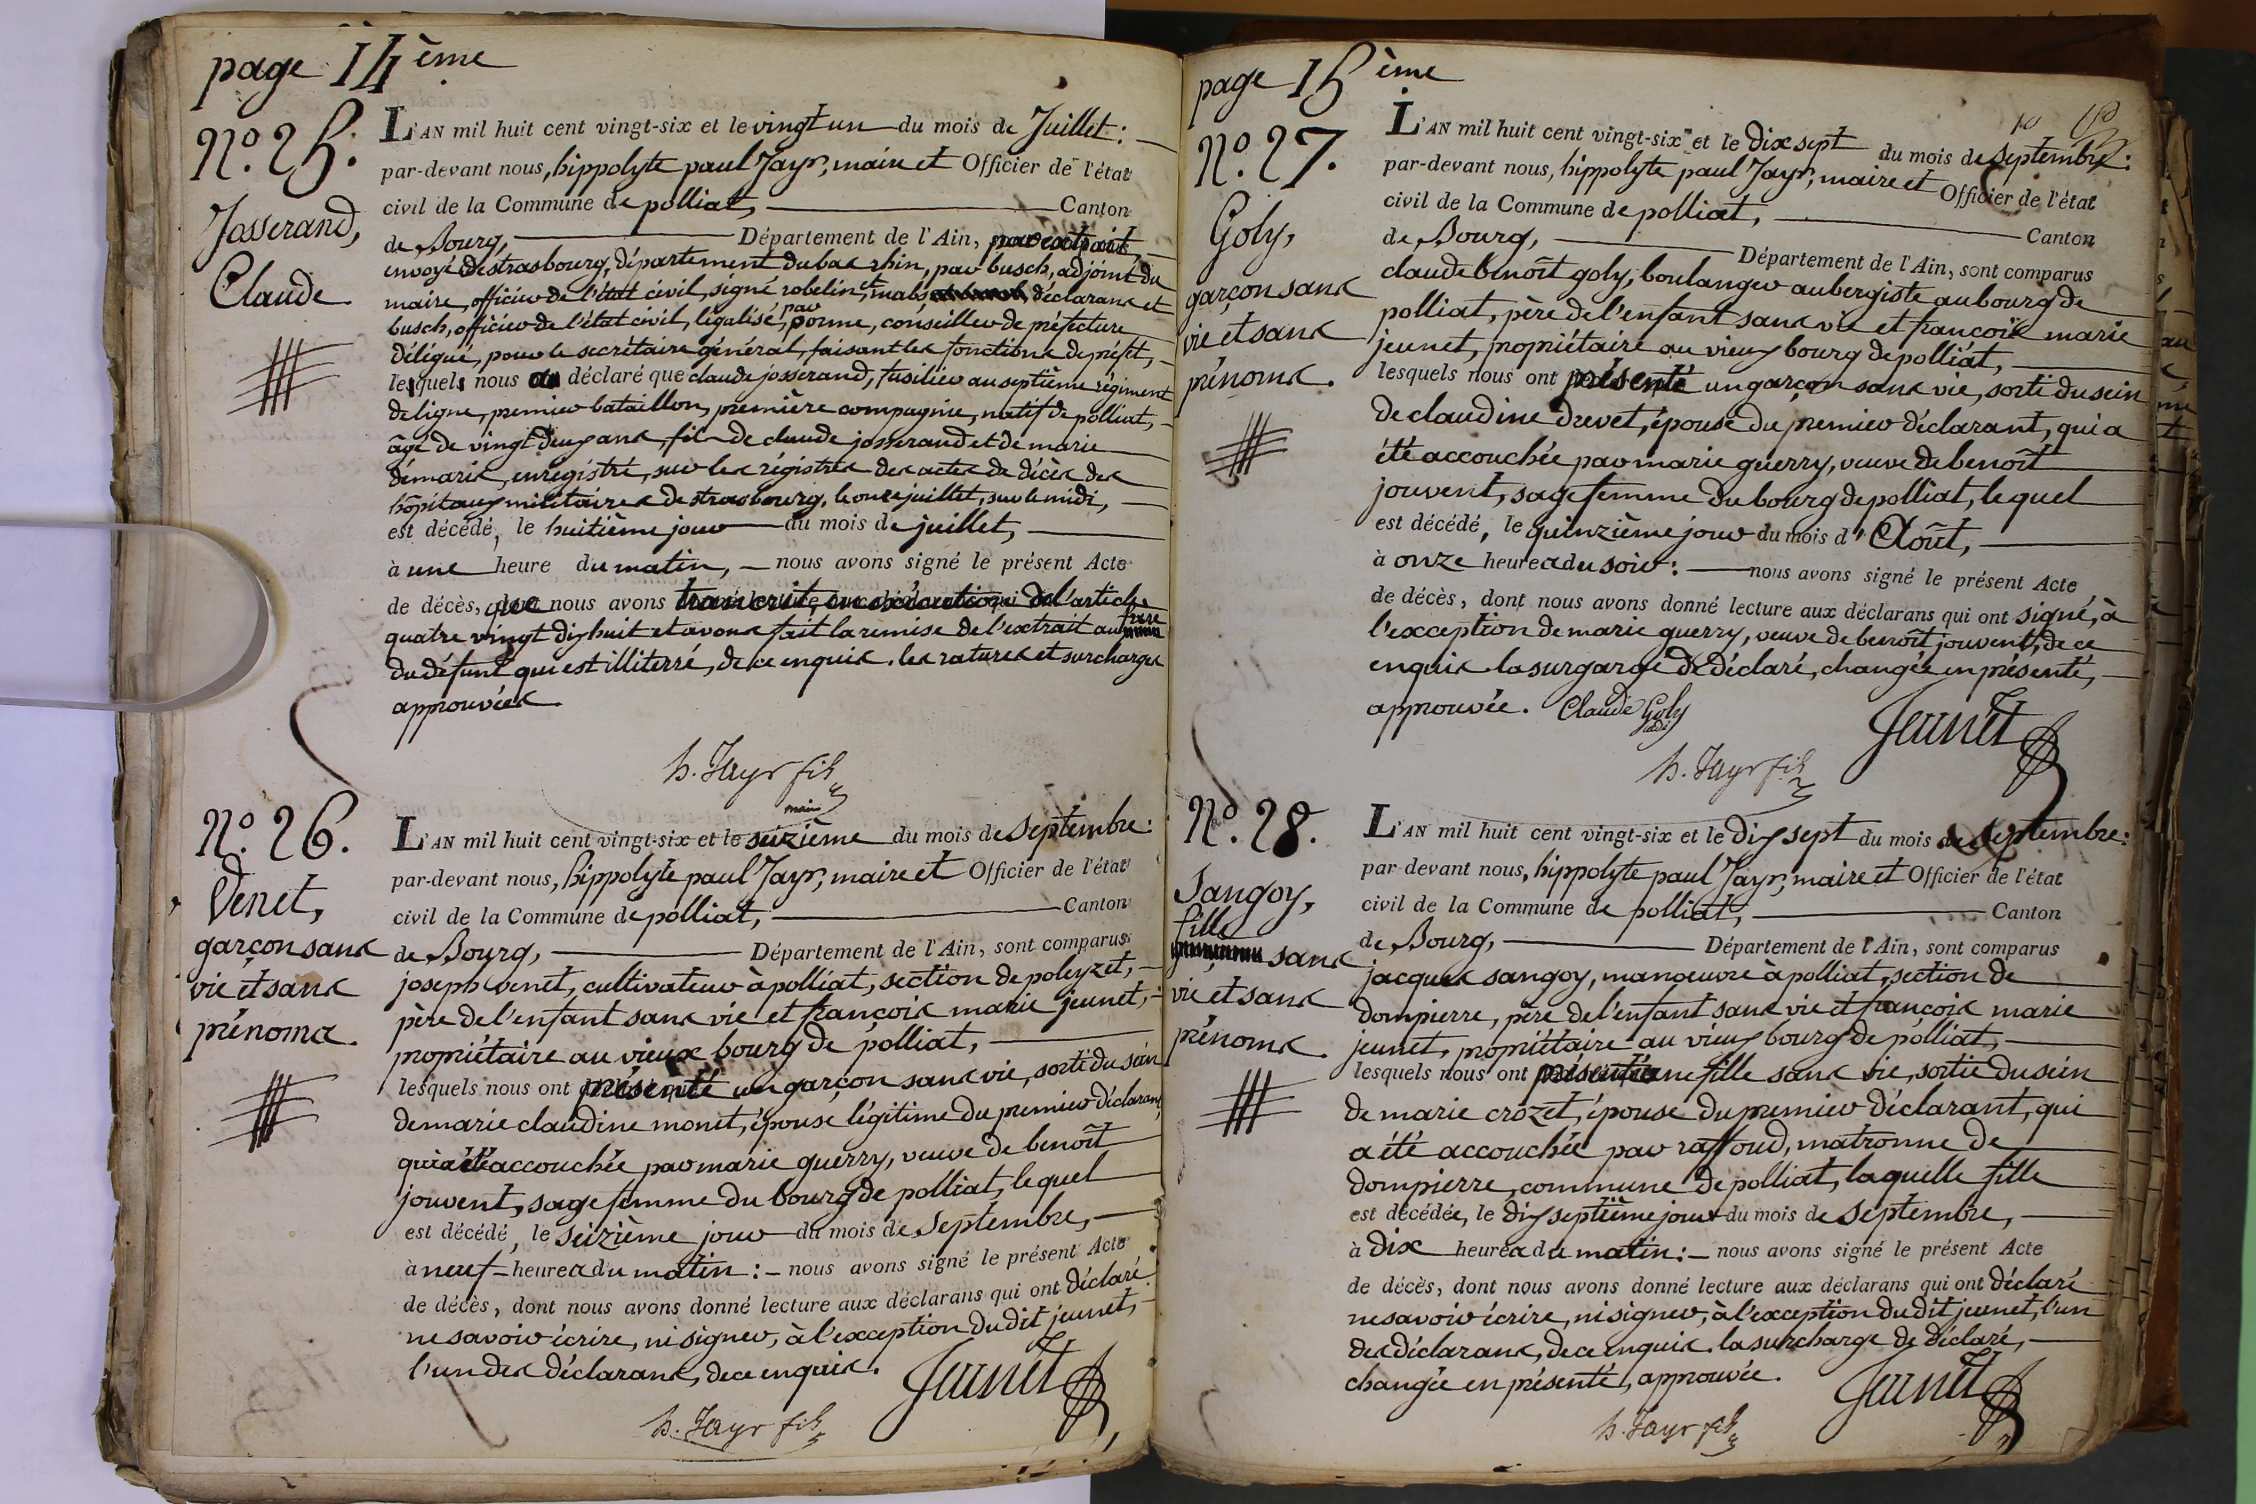 page 14ème
N.º 25.
Josserand,
Claude.
L'AN mil huit cent vingt-six et le vingt un du mois de Juillet :
par-devant nous, hippolyte paul Jayr, maire et Officier de l'état
civil de la Commune de polliat, Canton
de Bourg, Département de l'Ain, par extrait
envoyé de strasbourg, département du bas rhin, par busch, adjoint du
maire, officier de l'état civil, signé robelin et mals déclarans et
busch, officier de l'état civil, légalisé, par conseiller de préfecture
délégué, pour le secrétaire général, faisant les fonctions de préfet,
lesquels nous déclaré que claude josserand, fusilier au septième régiment
de ligne, premier bataillon, première compagnie, natif de polliat,
âgé de vingt deux ans, fils de claude josserand et de marie
démaris, enregistré, sur les régistres des actes de décès des
hôpitaux militaires de strasbourg, le onze juillet, sur le midi,
est décédé, le huitième jour du mois de juillet,
à une heure du matin, nous avons signé le présent Acte
de décès, que nous avons transcrit, en exécution de l'article
quatre vingt dix huit et avons fait la remise de l'extrait au frère
du défunt qui est illiterré, de ce enquis. les ratures et surcharges
approuvées
h. Jayr fils
maire
N.º 26.
Venet,
garçon sans
vie et sans
prénoms.
L'AN mil huit cent vingt-six et le seizième du mois de Septembre :
par-devant nous, hippolyte paul Jayr, maire et Officier de l'état
civil de la Commune de polliat, Canton
de Bourg, Département de l'Ain, sont comparus
joseph venet, cultivateur à polliat, section de poleyzet,
père de l'enfant sans vie et françois marie jeunet,
propriétaire au vieux bourg de polliat,
lesquels nous ont présenté un garçon sans vie, sorti du sein
de marie claudine monet, épouse légitime du premier déclarant,
qui a été accouchée par marie guerry, veuve de benoît
jouvent, sage femme du bourg de polliat, lequel
est décédé, le seizième jour du mois de septembre,
à neuf heures du matin : nous avons signé le présent Acte
de décès, dont nous avons donné lecture aux déclarans qui ont déclaré
ne savoir écrire, ni signer, à l'exception du dit jeunet,
l'un des déclarans, de ce enquis.
Jeunet
h. Jayr fils
page 15ème
N.º 27.
Goly,
garçon sans
vie et sans
prénoms.
L'AN mil huit cent vingt-six et le dix sept du mois de septembre :
par-devant nous, hippolyte paul Jayr, maire et Officier de l'état
civil de la Commune de polliat, Canton
de Bourg, Département de l'Ain, sont comparus
claude benoît goly, boulanger aubergiste au bourg de
polliat, père de l'enfant sans vie et françois marie
jeunet, propriétaire au vieux bourg de polliat,
lesquels nous ont présenté un garçon sans vie, sorti du sein
de claudine drevet, épouse du premier déclarant, qui a
été accouchée par marie guerry, veuve de benoît
jouvent, sage femme du bourg de polliat, lequel
est décédé, le quinzième jour du mois d'Août,
à onze heures du soir : nous avons signé le présent Acte
de décès, dont nous avons donné lecture aux déclarans qui ont signé, à
l'exception de marie guerry, veuve de benoît jouvent, de ce
enquis la surgarge de déclaré, changée en présenté,
approuvée. Claude Goly
Jeunet
h. Jayr fils
N.º 28.
Sangoy,
fille
sans
vie et sans
prénoms.
L'AN mil huit cent vingt-six et le dix sept du mois de septembre :
par devant nous, hippolyte paul Jayr, maire et Officier de l'état
civil de la Commune de polliat, Canton
de Bourg, Département de l'Ain, sont comparus
jacques sangoy, manœuvre à polliat, section de
dompierre, père de l'enfant sans vie et françois marie
jeunet, propriétaire au vieux bourg de polliat,
lesquels nous ont présenté une fille sans vie, sortie du sein
de marie crozet, épouse du premier déclarant, qui
a été accouchée par raffoud, matronne de
dompierre, commune de polliat, laquelle fille
est décédée, le dix septième jour du mois de septembre,
à dix heures du matin : nous avons signé le présent Acte
de décès, dont nous avons donné lecture aux déclarans qui ont déclaré
ne savoir écrire, ni signer, à l'exception du dit jeunet, l'un
des déclarans, de ce enquis. la surcharge de déclaré,
changée en présenté, approuvée.
Jeunet
h. Jayr fils